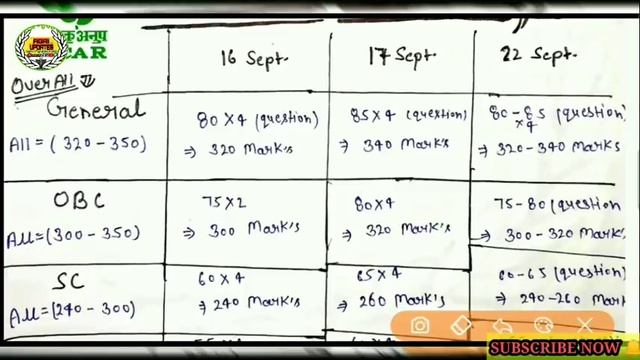 AGRI UPDATES
कृअनुप
CAR
16 Sept.
17 Sept.
22 Sept.
OverAll
General
All = (320 - 350)
80 x 4 (question)
⇒ 320 Mark's
85 x 4 (question)
⇒ 340 Mark's
80 - 85 (question)
x 4
⇒ 320 - 340 Marks
OBC
All = (300 - 350)
75 x 2
⇒ 300 Mark's
80 x 4
⇒ 320 Mark's
75 - 80 (question
⇒ 300 - 320 Mark's
SC
All = (240 - 300)
60 x 4
⇒ 240 Mark's
65 x 4
⇒ 260 Mark's
60 - 65 (question)
⇒ 240 - 260 Mark
SUBSCRIBE NOW